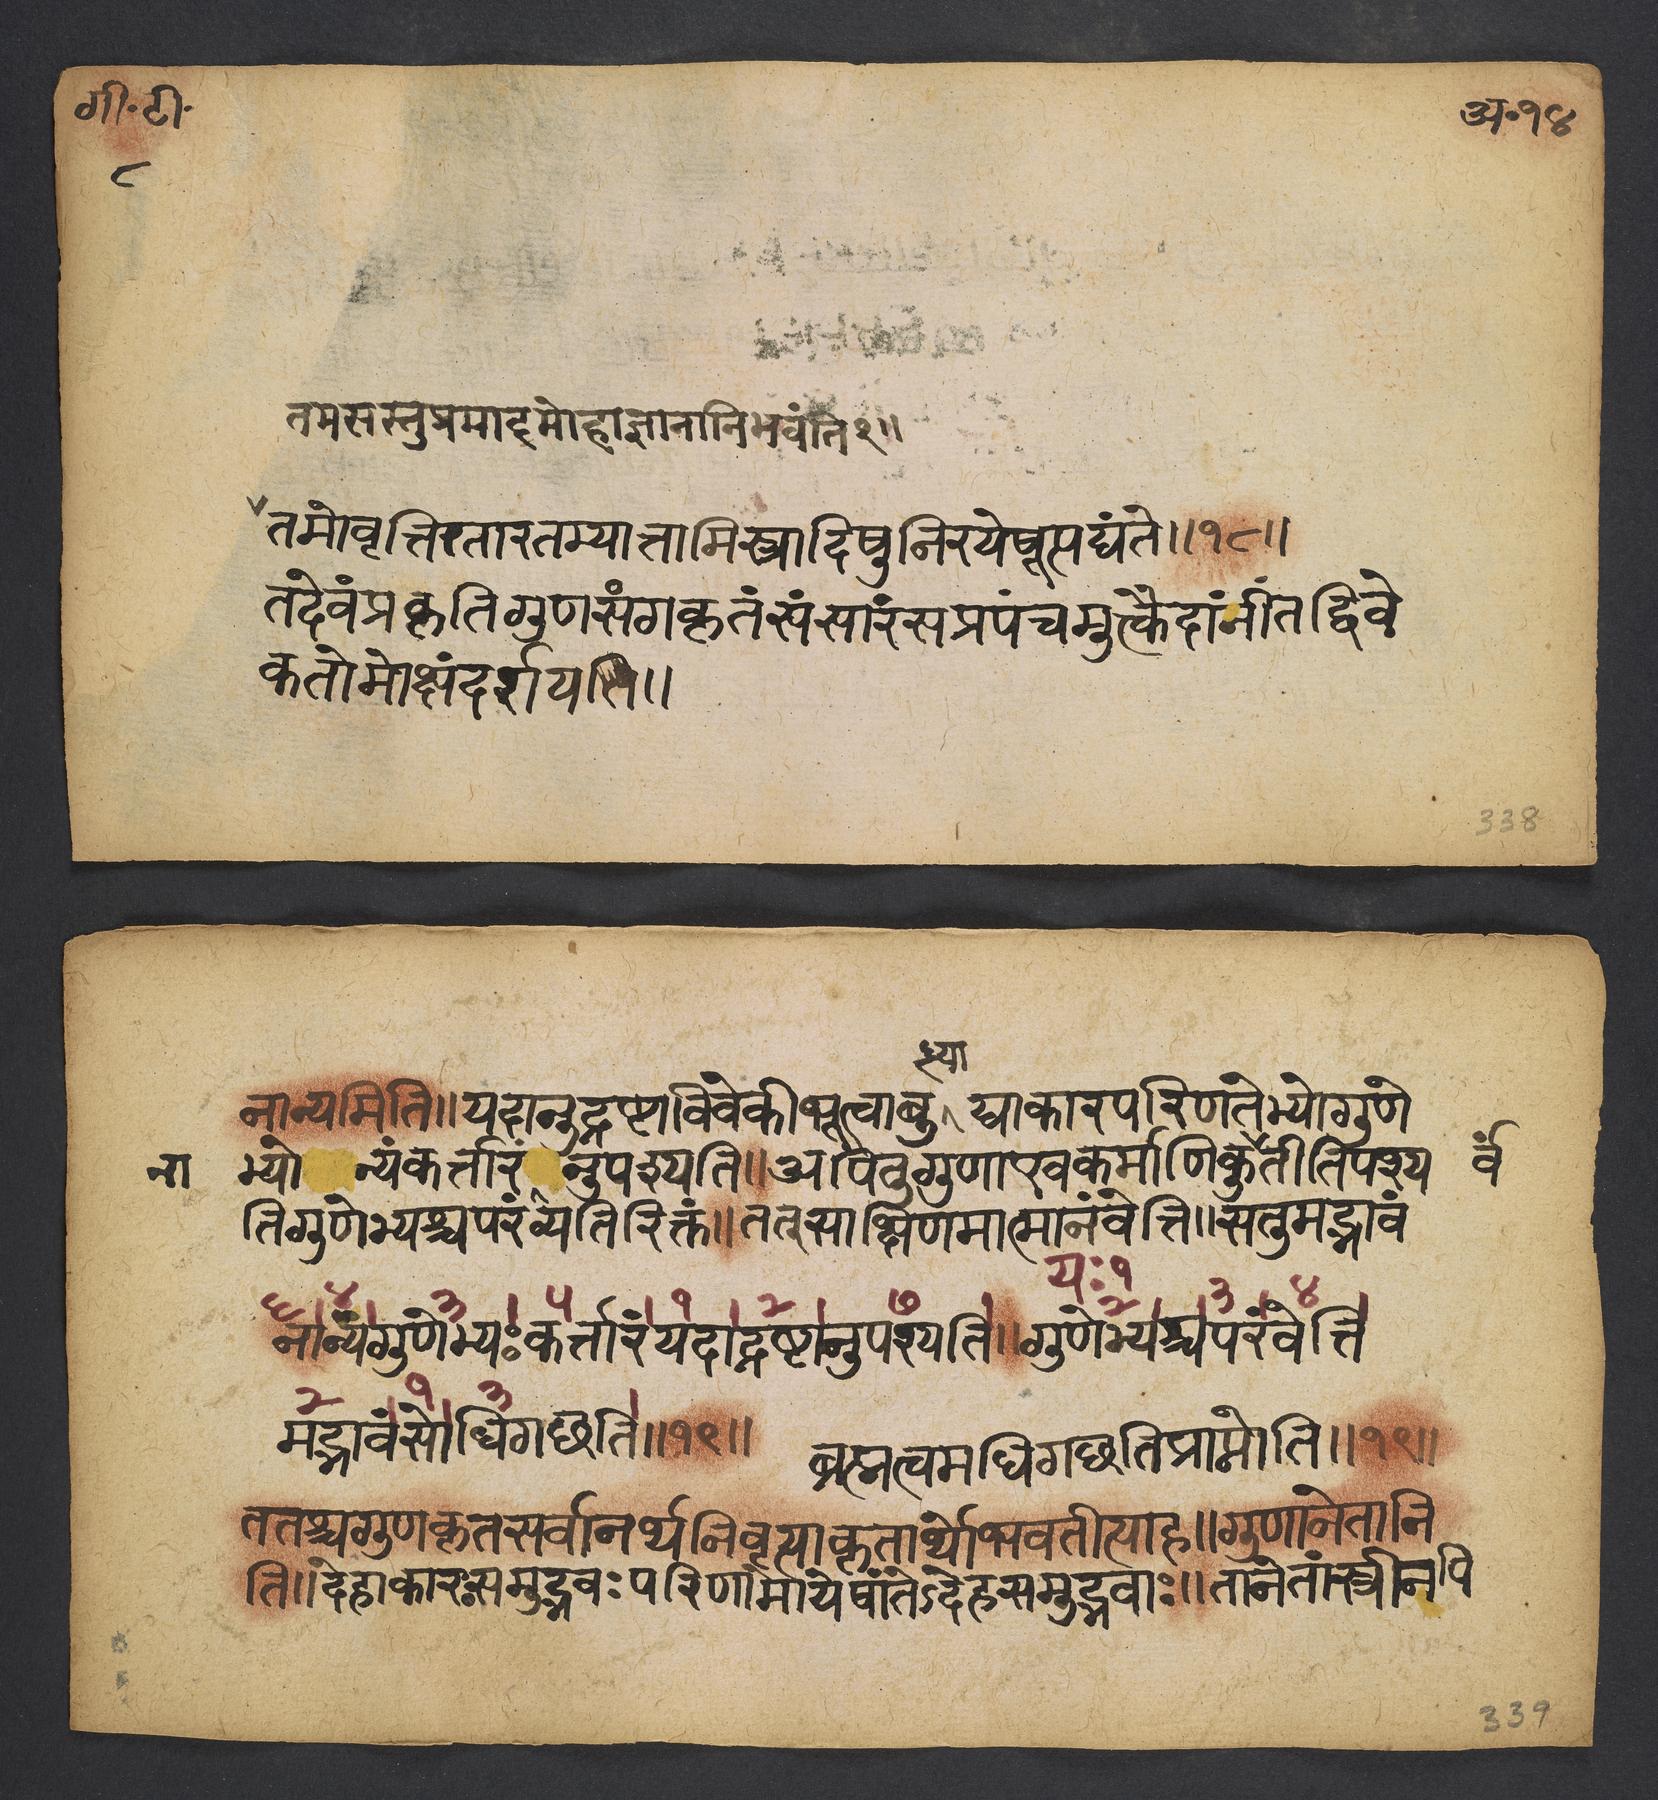 गी॰टी॰
अ॰१४
८
तमसस्तुप्रमादमोहाज्ञानानिभवंति२॥
तमोवृत्तितारतम्यात्तामिस्रादिषुनिरयेषूत्पद्यंते॥१८॥
तदेवंप्रकृतिगुणसंगकृतंसंसारंसप्रपंचमुक्त्वेदानींतद्विवे
कतोमोक्षंदर्शयति॥
338
ध्या
नान्यमिति॥यदानुद्रष्टाविवेकीभूत्वाबुद्ध्याकारपरिणतेभ्योगुणे
ना भ्यो न्यंकर्त्तारं नुपश्यति॥अपितुगुणाएवकर्माणिकुर्वंतीतिपश्य र्वं
तिगुणेभ्यश्चपरंव्यतिरिक्तं॥तत्साक्षिणमात्मानंवेत्ति॥सतुमद्भावं
६ ४ ३ ५ १ २ ७ यः१ २ ३ ४
नान्यंगुणेभ्यःकर्त्तारंयदाद्रष्टानुपश्यति॥गुणेभ्यश्चपरंवेत्ति
२ १ ३
मद्भावंसोधिगछति॥१९॥
ब्रह्मत्वमधिगछतिप्राप्नोति॥१९॥
ततश्चगुणकृतसर्वानर्थनिवृत्याकृतार्थोभवतीत्याह॥गुणानेतानि
ति॥देहाकारःसमुद्भवःपरिणामोयेषांतेऽदेहसमुद्भवाः॥तानेतांस्त्रीनपि
339